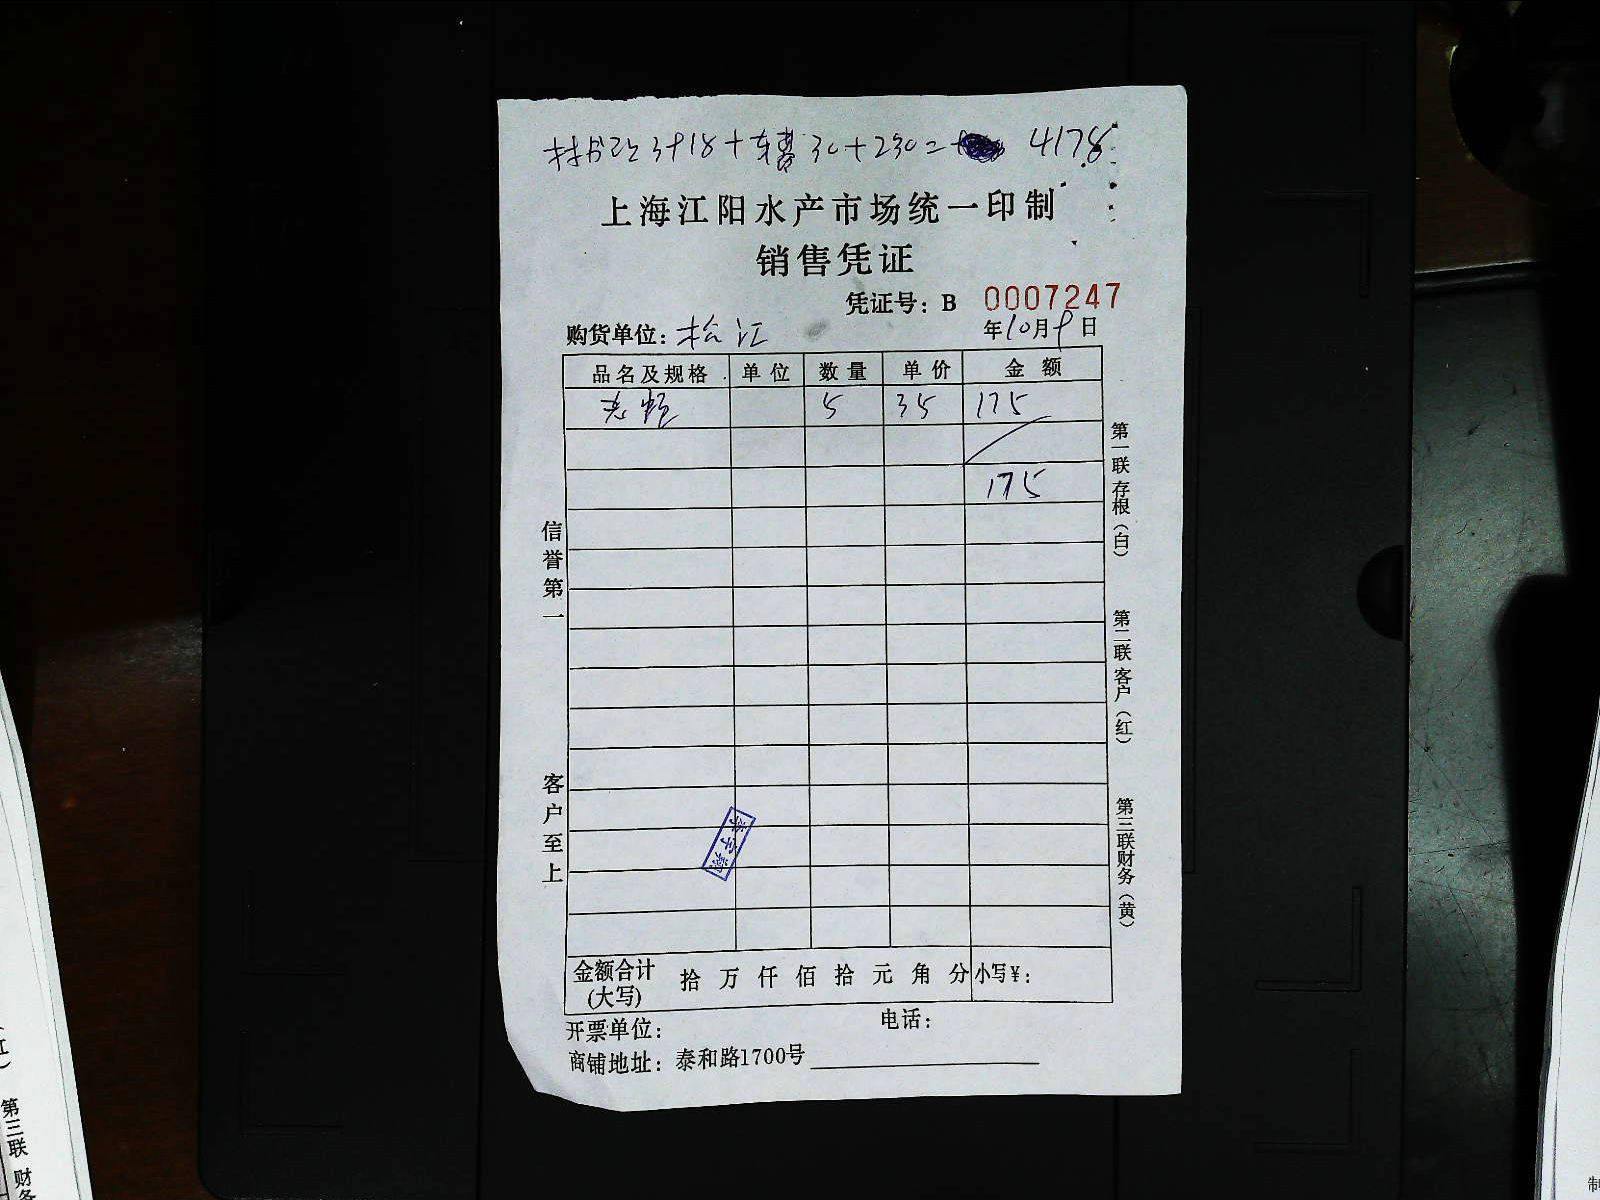 3918+车费30+230= 4178
上海江阳水产市场统一印制
销售凭证
凭证号：B 0007247
购货单位：松江 年10月9日
品名及规格 单位 数量 单价 金额
5 35 175
175
信誉第一
客户至上
第一联存根（白）
第二联客户（红）
第三联财务（黄）
金额合计(大写) 拾万仟佰拾元角分 小写¥：
开票单位： 电话：
商铺地址：泰和路1700号
第三联 财务
制